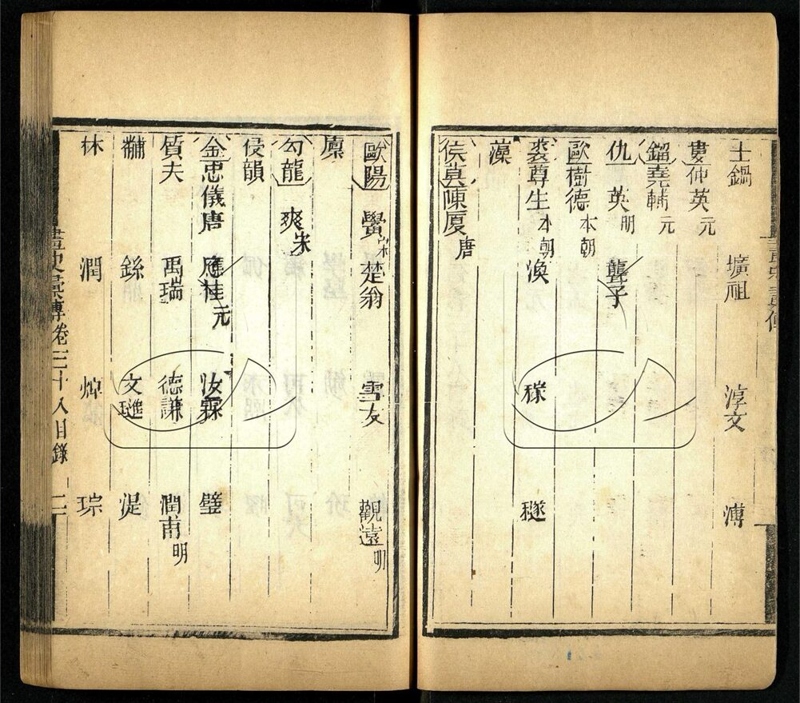 士鍋 壙祖 淳文 溥
婁仲英元
鎦堯輔元
仇英明 龔子
歐樹德本朝
裘尊生本朝 渙 稼
藻
侯莫陳厦唐
歐陽 黌宋 楚翁 雪友 觀遠明
勾龍 爽宋
侵韻
金忠儀唐 應桂元 汝霖 璧
質夫 禹瑞 德謙 潤甫明
黼 文璡 湜
林 潤 焯 琮
畫史彙傳卷三十八目錄 二